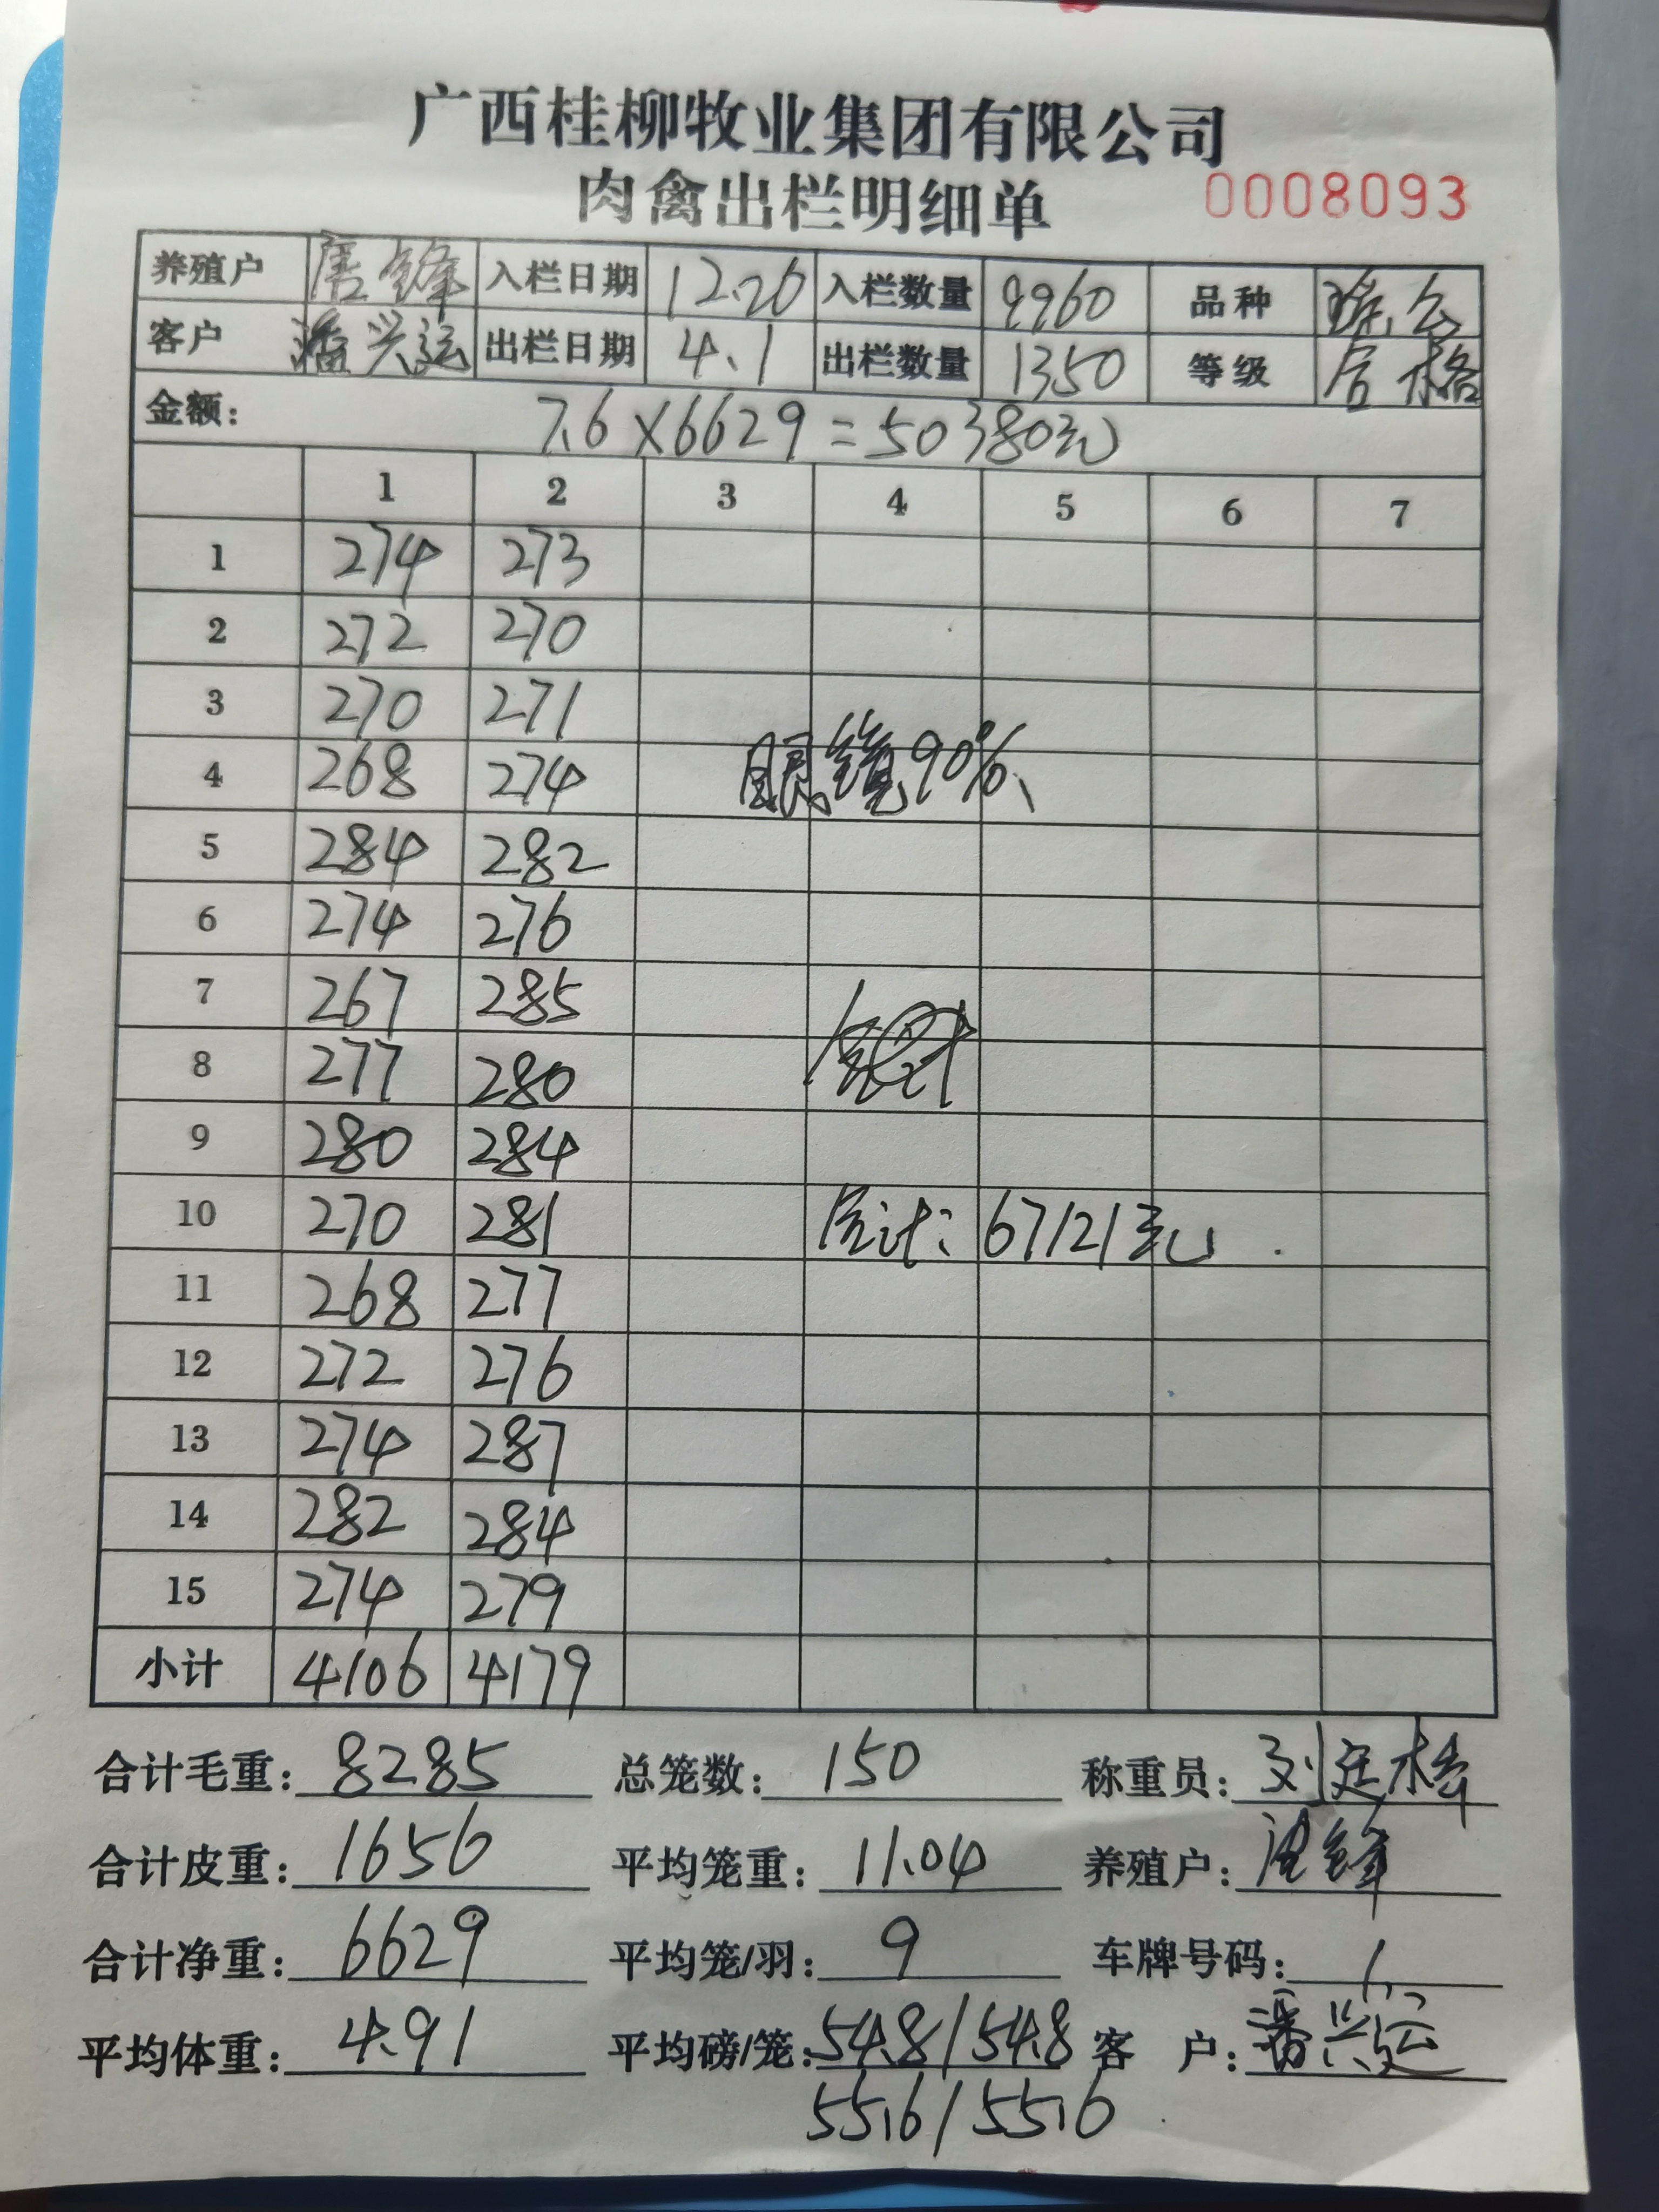 广西桂柳牧业集团有限公司
肉禽出栏明细单 0008093
养殖户 唐锋 入栏日期 12.26 入栏数量 9960 品种 瑶公
客户 潘兴运 出栏日期 4.1 出栏数量 1350 等级 合格
金额: 7.6×6629=50380元
1 2 3 4 5 6 7
1 274 273
2 272 270
3 270 271
4 268 274 眼镜90%
5 284 282
6 274 276
7 267 285
8 277 280
9 280 284
10 270 281 合计:67121元
11 268 277
12 272 276
13 274 287
14 282 284
15 274 279
小计 4106 4179
合计毛重: 8285 总笼数: 150 称重员: 刘廷
合计皮重: 1656 平均笼重: 11.04 养殖户: 唐锋
合计净重: 6629 平均笼/羽: 9 车牌号码: 1
平均体重: 4.91 平均磅/笼: 54.8/54.8 客 户: 潘兴运
55.6/55.6